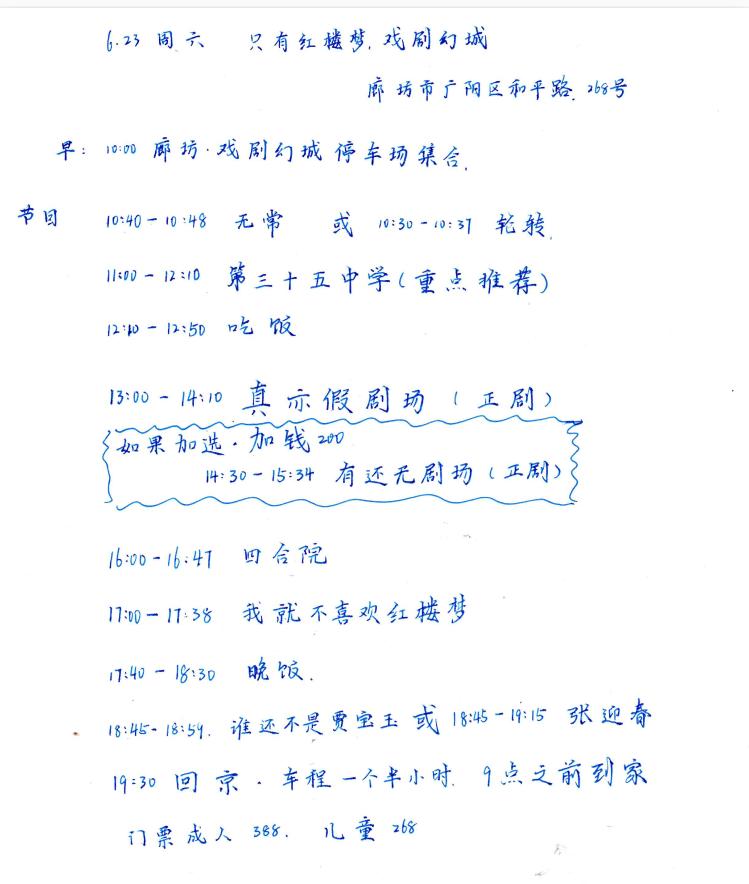 6.23 周六 只有红楼梦.戏剧幻城
廊坊市广阳区和平路.268号
早: 10:00 廊坊·戏剧幻城停车场集合.
节目 10:40-10:48 无常 或 10:30-10:37 轮转.
11:00-12:10 第三十五中学(重点推荐)
12:10-12:50 吃饭
13:00-14:10 真亦假剧场(正剧)
如果加选·加钱200
14:30-15:34 有还无剧场(正剧)
16:00-16:47 四合院
17:00-17:38 我就不喜欢红楼梦
17:40-18:30 晚饭.
18:45-18:59. 谁还不是贾宝玉 或 18:45-19:15 张迎春
19:30 回京·车程一个半小时. 9点之前到家
门票成人 388. 儿童 268